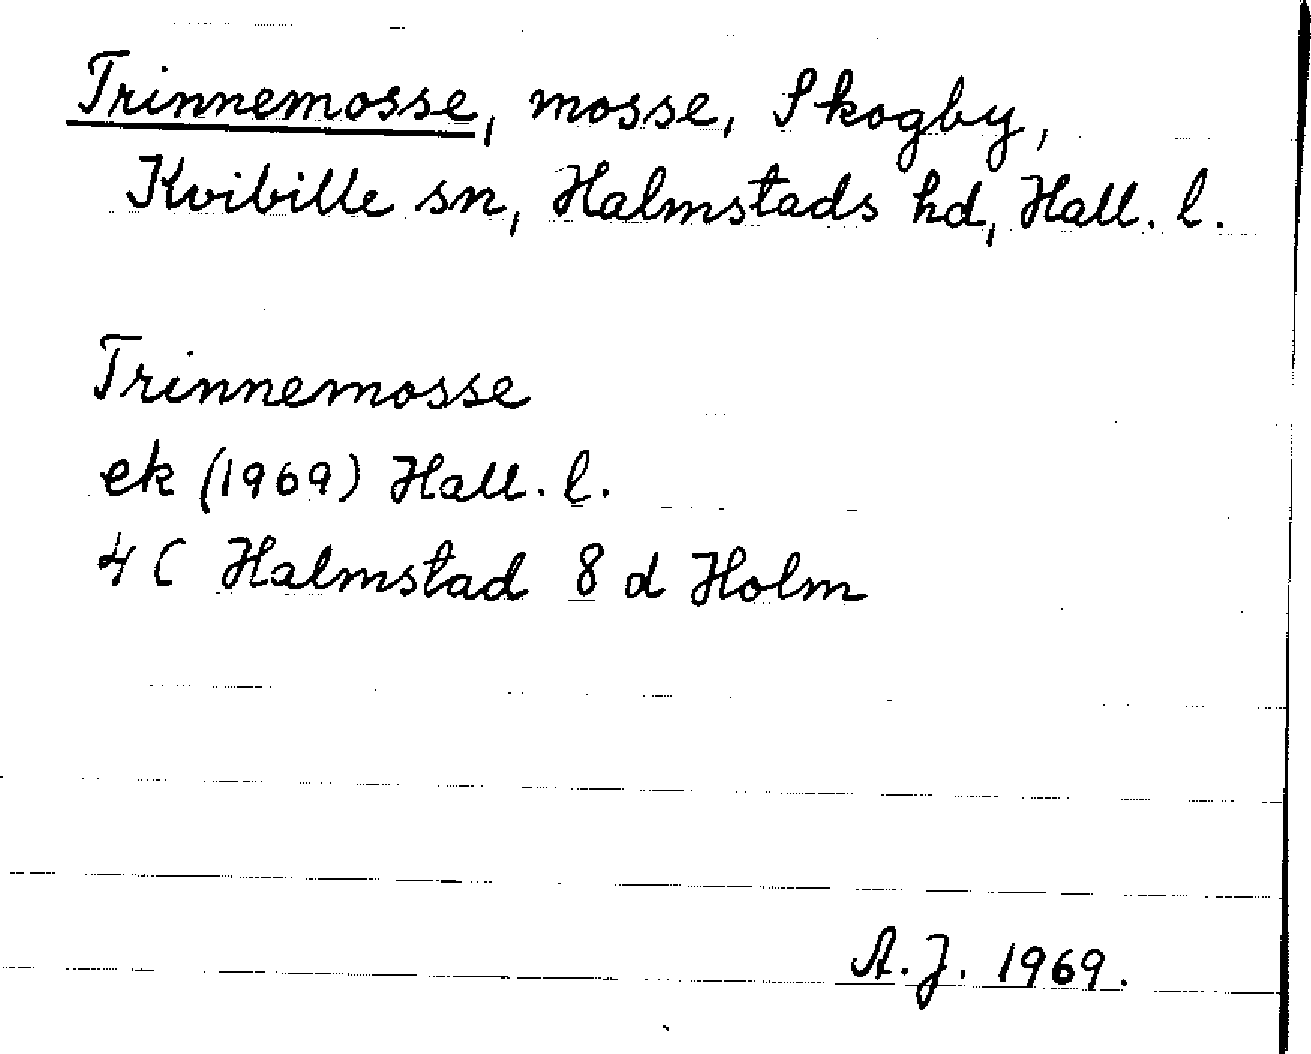 Trinnemosse, mosse, Skogby,
Kvibille sn, Halmstads hd, Hall. l.
Trinnemosse
ek (1969) Hall. l.
4 C Halmstad 8 d Holm
A.J. 1969.